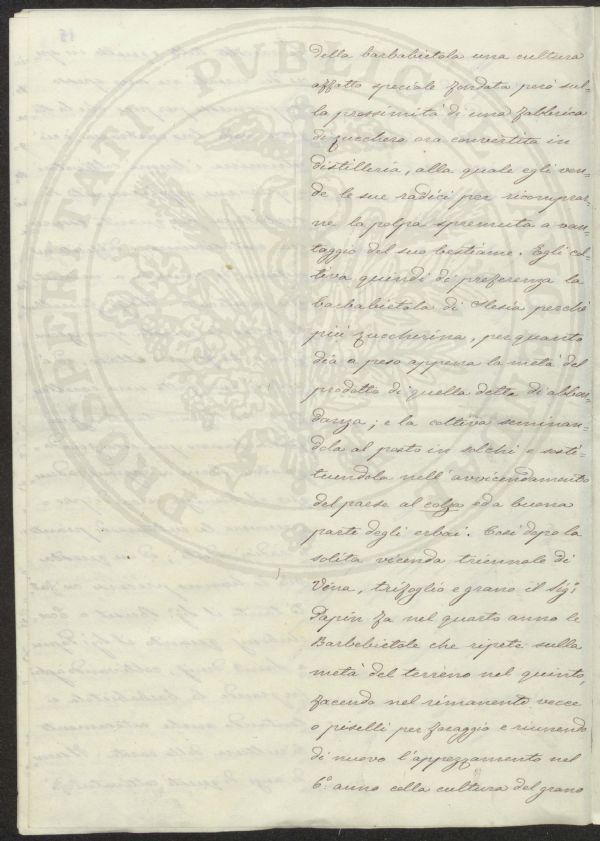 della barbabietola una cultura
affatto speciale fondata però sul-
la prossimità di una fabbrica
di zucchero ora convertita in
distilleria, alla quale egli ven-
de le sue radici per ricomprar-
ne la polpa spremuta a van-
taggio del suo bestiame. Egli col-
tiva quindi di preferenza la
barbabietola di Slesia perchè
più zuccherina, perquanto
dia a peso appena la metà del
prodotto di quella detta di abbon-
danza; e la coltiva seminan-
dola al posto in solchi e sosti-
tuendola nell'avvicendamento
del paese al colza ed a buona
parte degli erbai. Così dopo la
solita vicenda triennale di
Vena, trifoglio e grano il Sigr
Papin fa nel quarto anno le
Barbebietole che ripete sulla
metà del terreno nel quinto,
facendo nel rimanente vecce
o piselli per foraggio e riunendo
di nuovo l'appezzamento nel
6.° anno colla cultura del grano
PROSPERITATI PUBLICAE